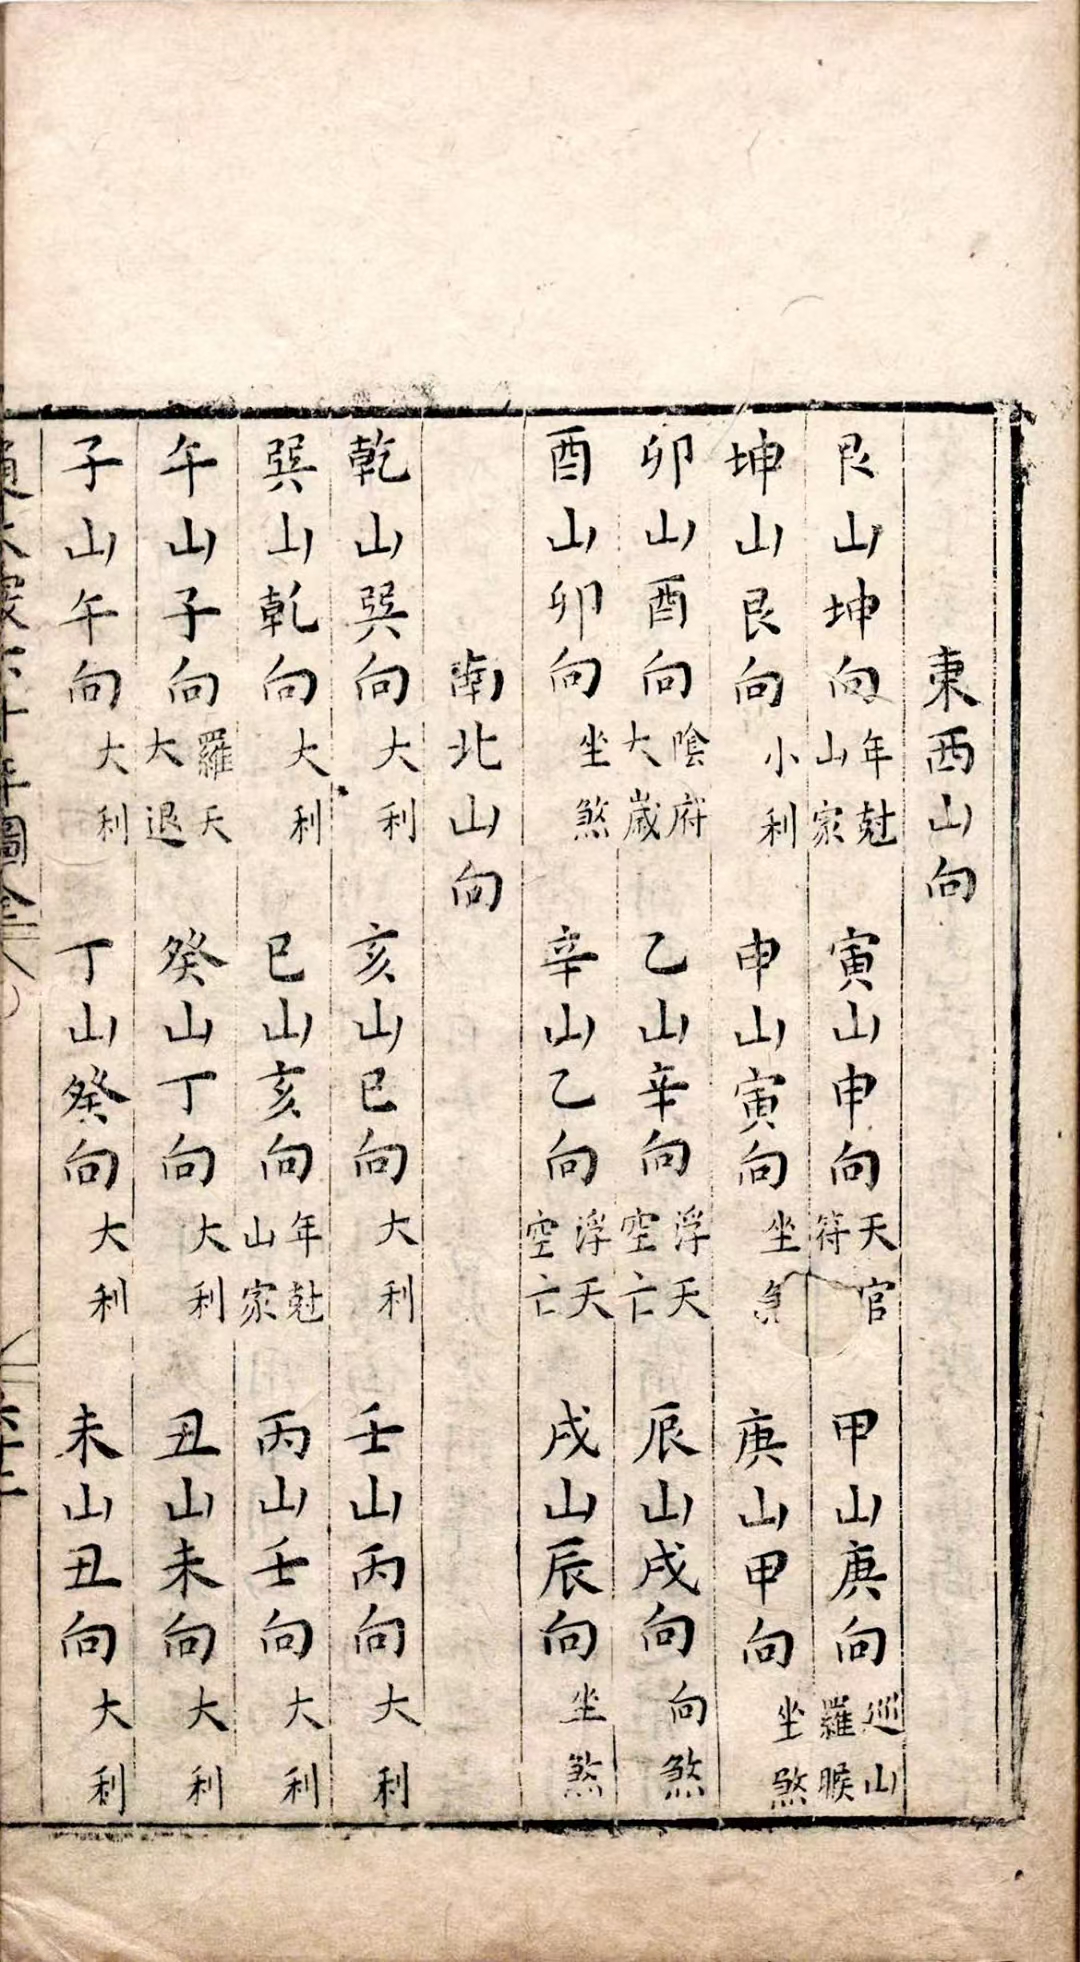 東西山向
艮山坤向年尅山家 寅山申向天官符 甲山庚向巡山羅睺
坤山艮向小利 申山寅向坐 庚山甲向坐煞
卯山酉向陰府大歲 乙山辛向浮天空亡 辰山戌向向煞
酉山卯向坐煞 辛山乙向浮天空亡 戌山辰向坐煞
南北山向
乾山巽向大利 亥山巳向大利 壬山丙向大利
巽山乾向大利 巳山亥向年尅山家 丙山壬向大利
午山子向羅天大退 癸山丁向大利 丑山未向大利
子山午向大利 丁山癸向大利 未山丑向大利